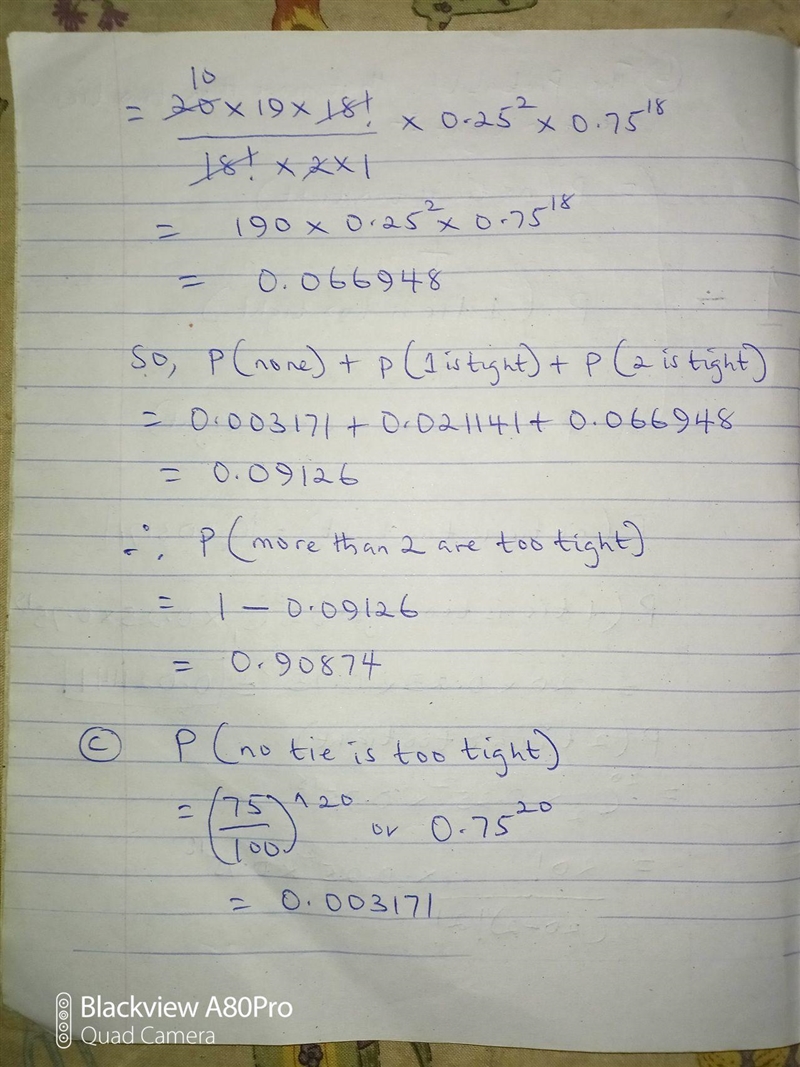 10
= 20 × 19 × 18! × 0.25² × 0.75¹⁸
18! × 2 × 1
= 190 × 0.25² × 0.75¹⁸
= 0.066948
So, P(none) + P(1 is tight) + P(2 is tight)
= 0.003171 + 0.021141 + 0.066948
= 0.09126
∴ P(more than 2 are too tight)
= 1 - 0.09126
= 0.90874
(c) P(no tie is too tight)
= (75/100)^20 or 0.75²⁰
= 0.003171
Blackview A80Pro
Quad Camera